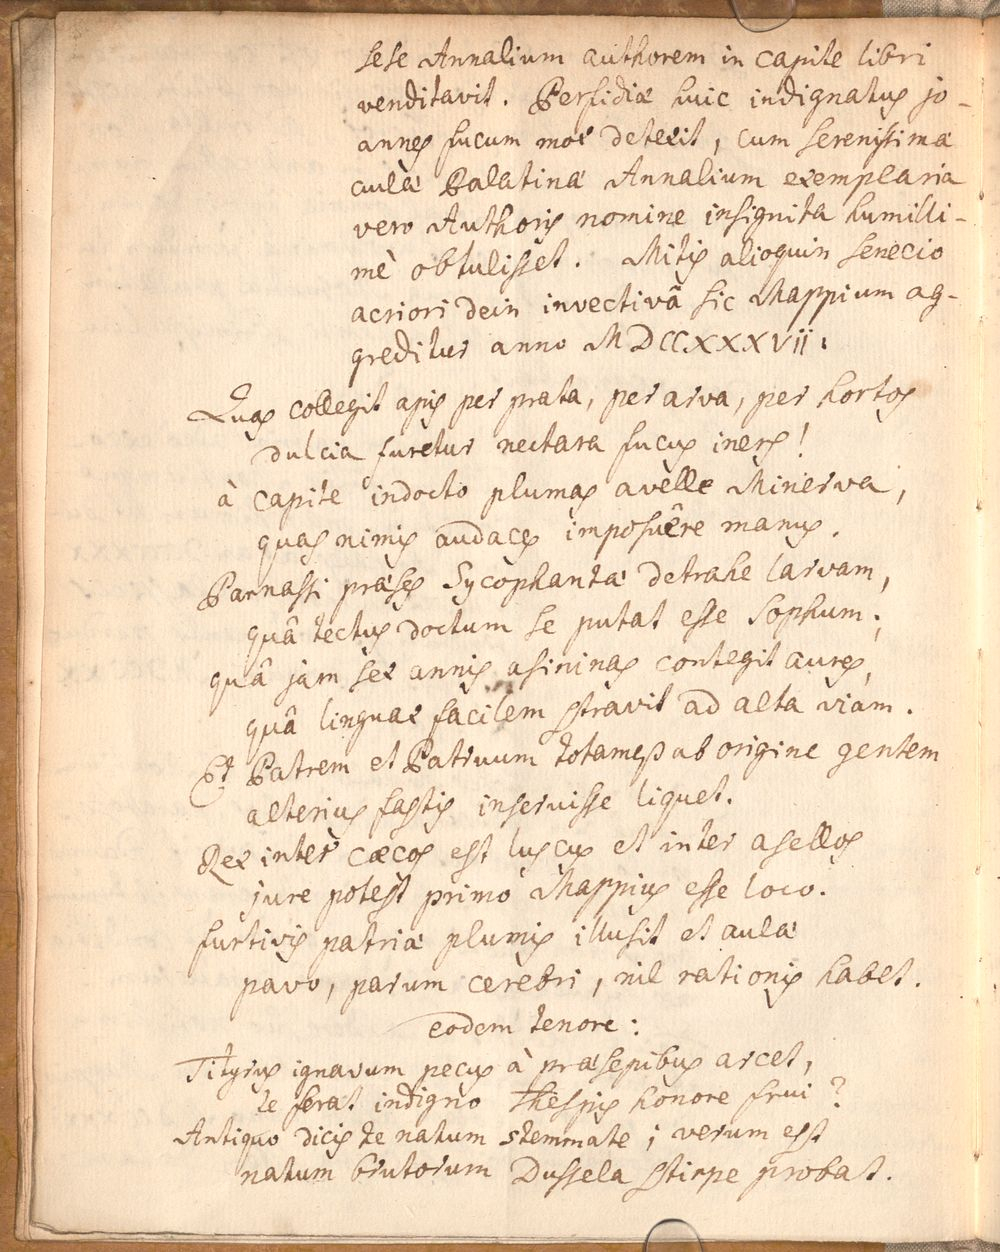 sese Annalium authorem in capite libri
venditavit. Perfidiæ huic indignatus jo-
annes fucum mox detexit, cum serenissimæ
aulæ Palatinæ Annalium exemplaria
vero Authoris nomine insignita humilli-
mè obtulisset. Mitis alioquin senecio
acriori dein invectivâ sic Mappium ag-
greditur anno MDCCXXXVII.
Quas collegit apis per prata, per arva, per hortos
dulcia furetur nectara fucus iners!
à capite indocto plumas avelle Minerva,
quas nimis audaces imposuêre manus.
Parnassi præses Sycophantæ detrahe larvam,
quâ tectus doctum se putat esse Sophum;
quâ jam sex annis asininas contegit aures,
quâ linguax facilem stravit ad alta viam.
Et Patrem et Patruum totamq ab origine gentem
alterius fastis inseruisse liquet.
Rex inter cæcos est luscus et inter asellos
jure potest primo Mappius esse loco.
furtivis patriæ plumis illusit et aulæ
pavo, parum cerebri, nil rationis habet.
eodem tenore:
Tityrus ignavum pecus à præsepibus arcet,
te ferat indigno Thespis honore frui?
Antiquo dicis te natum stemmate; verum est
natum brutorum Dussela stirpe probat.